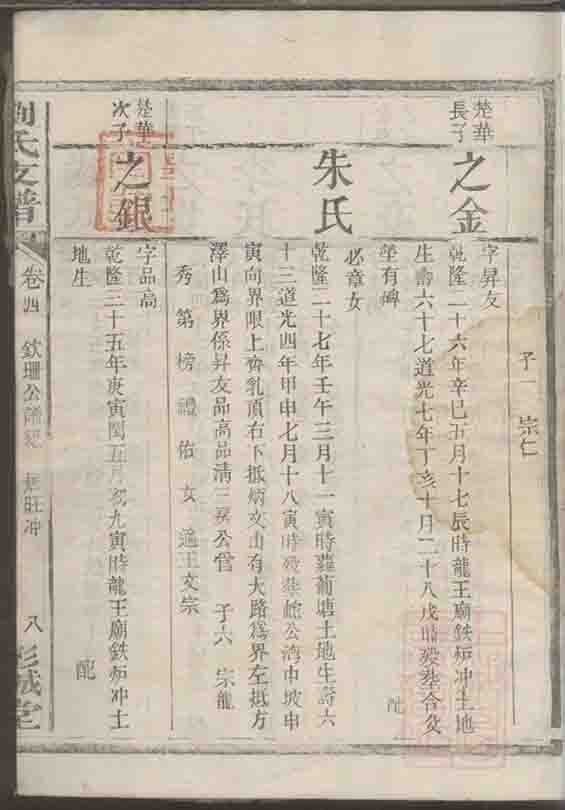 子一 宗仁
楚華
長子
之金
字昇友
乾隆二十六年辛巳五月十七辰時龍王廟鉄炉冲土地
生壽六十七道光七年丁亥十月二十八戊時殁塟合父
塋有碑 配
朱氏
必章女
乾隆二十七年壬午三月十一寅時蘿蔔塘土地生壽六
十三道光四年甲申七月十八寅時殁塟蛇公湾巾坡申
寅向界限上齊乳頂右下抵炳文山有大路為界左抵方
澤山為界係昇友品高品清三房公管 子六 宗龍
秀 第 榜 禮 佑 女 適王文宗
楚華
次子
之銀
字品高
乾隆三十五年庚寅閏五月初九寅時龍王廟鉄炉冲土
地生 配
劉氏支譜
卷四 欽珊公 旺冲
八 彭城堂